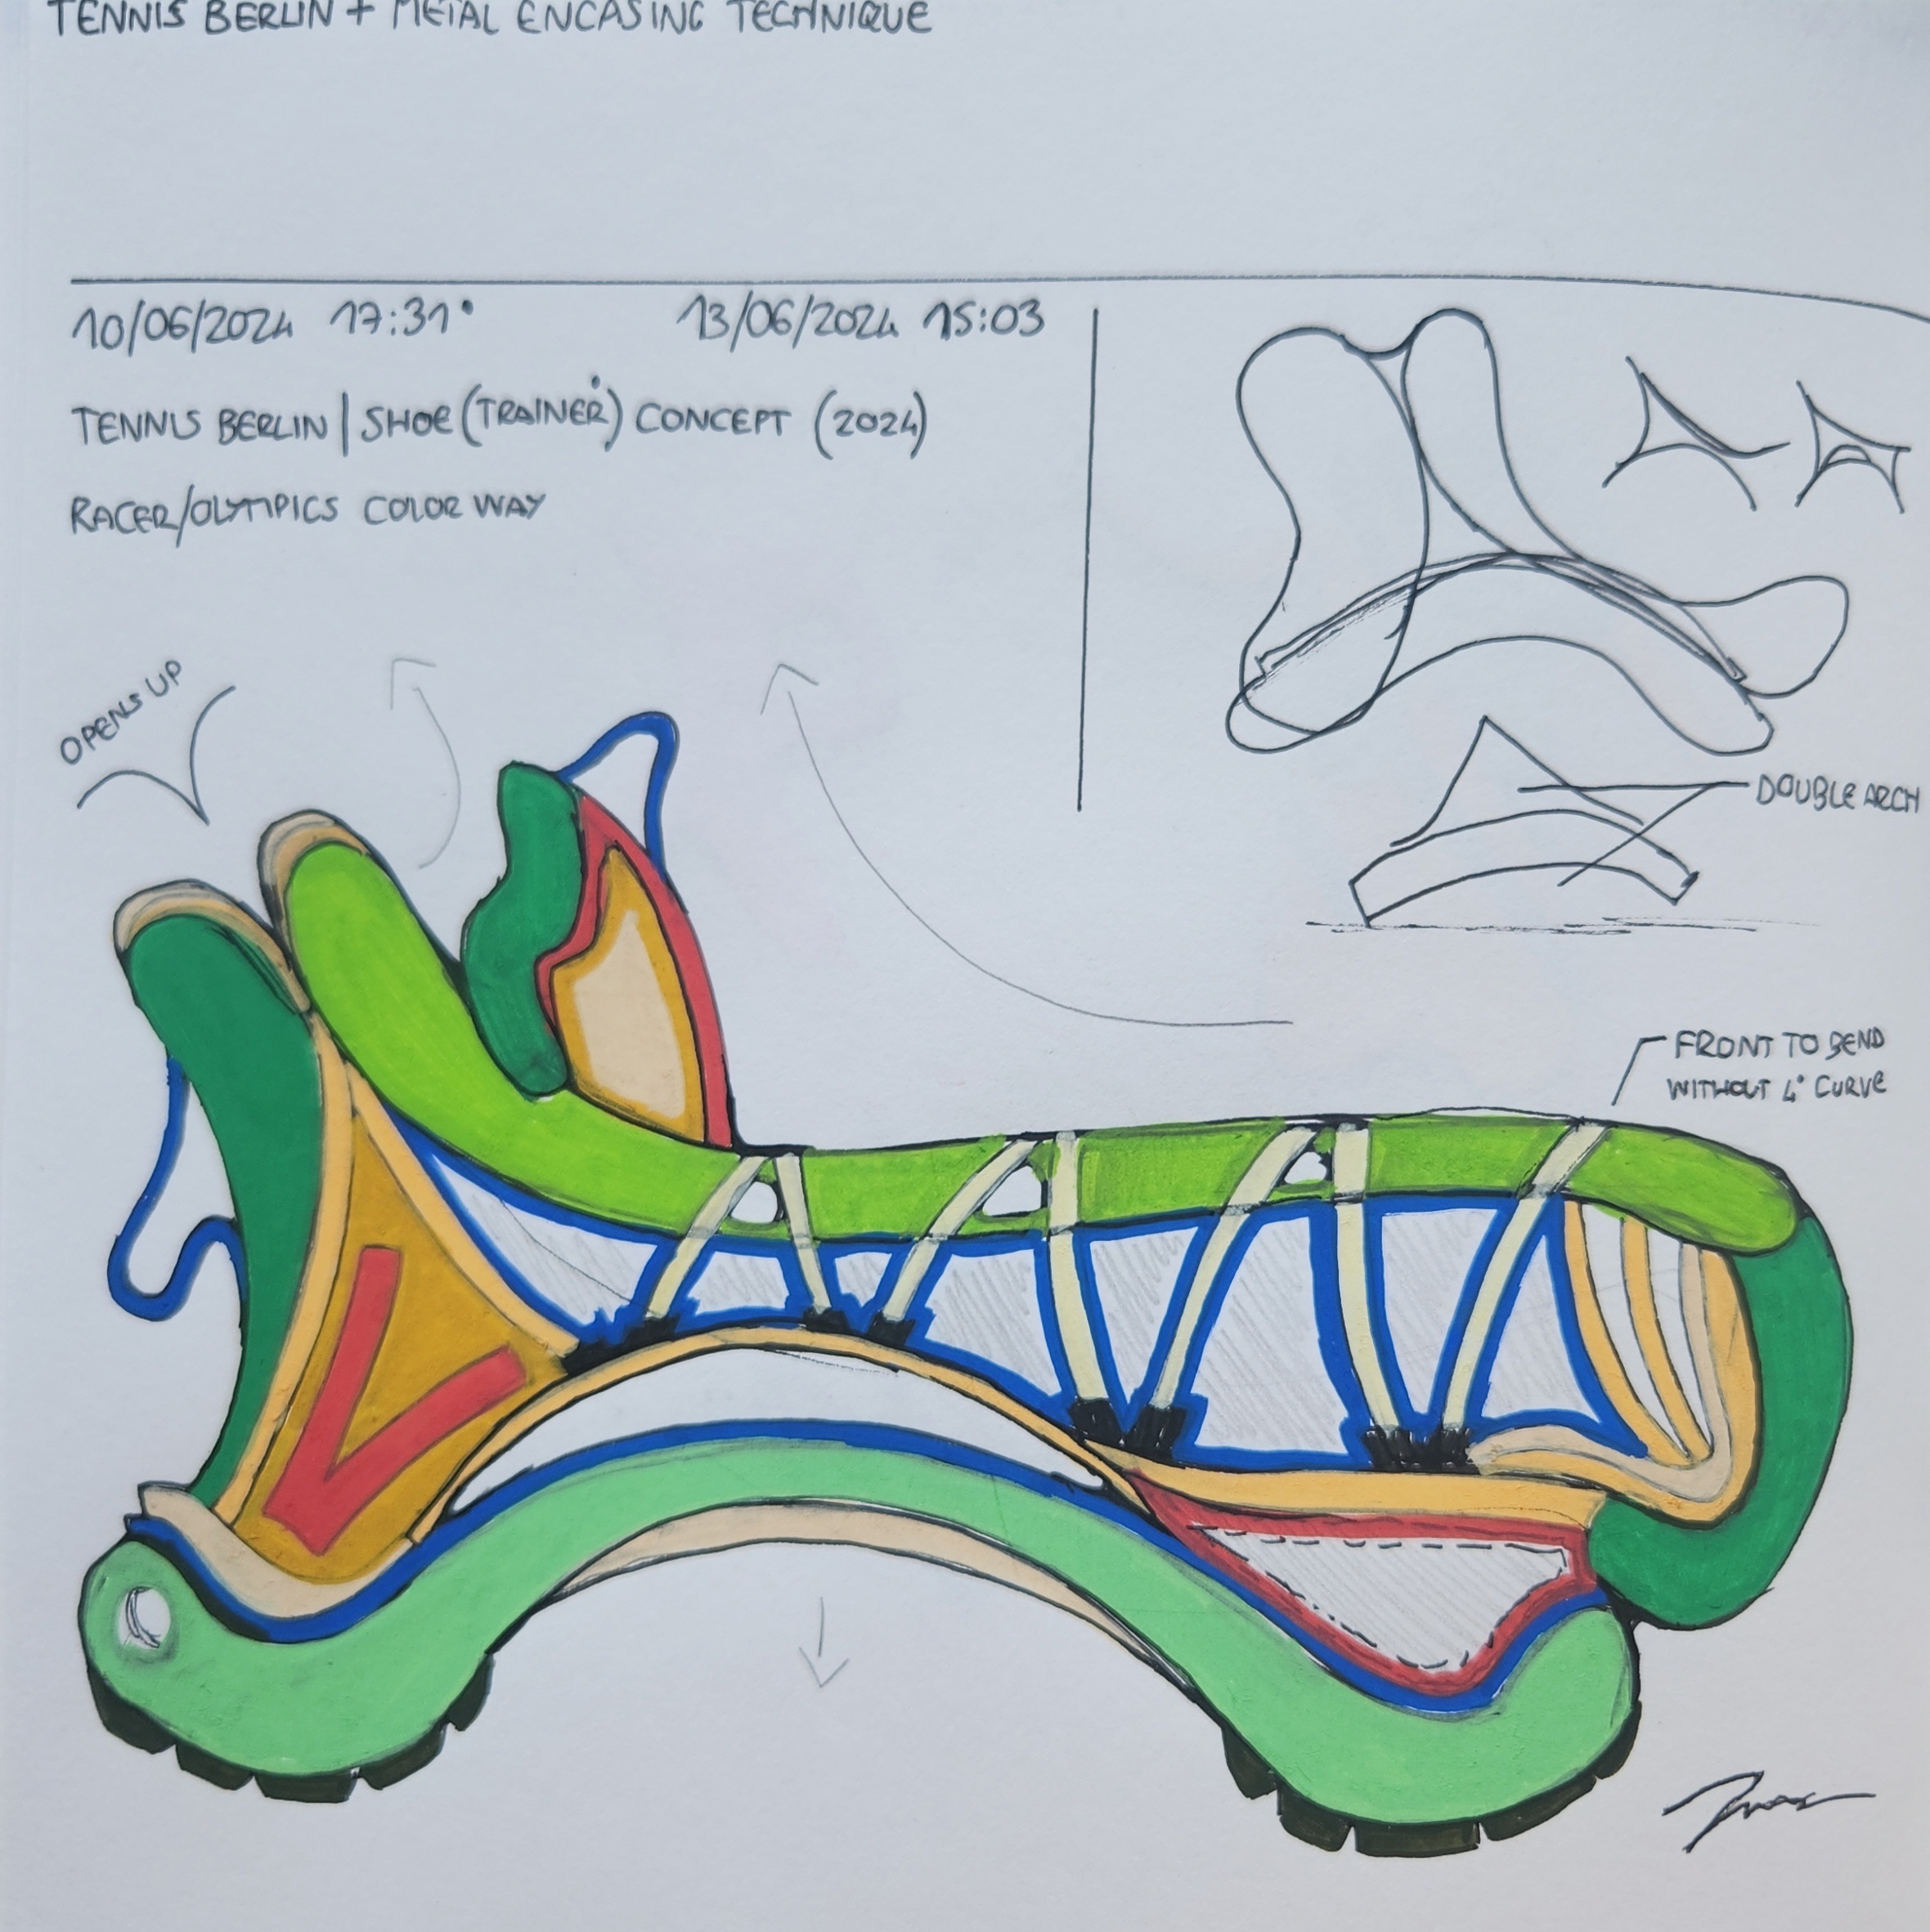 TENNIS BERLIN + METAL ENCASING TECHNIQUE
10/06/2024 17:31 13/06/2024 15:03
TENNIS BERLIN | SHOE (TRAINER) CONCEPT (2024)
RACER/OLYMPICS COLOR WAY
OPENS UP
DOUBLE ARCH
FRONT TO BEND
WITHOUT 4° CURVE